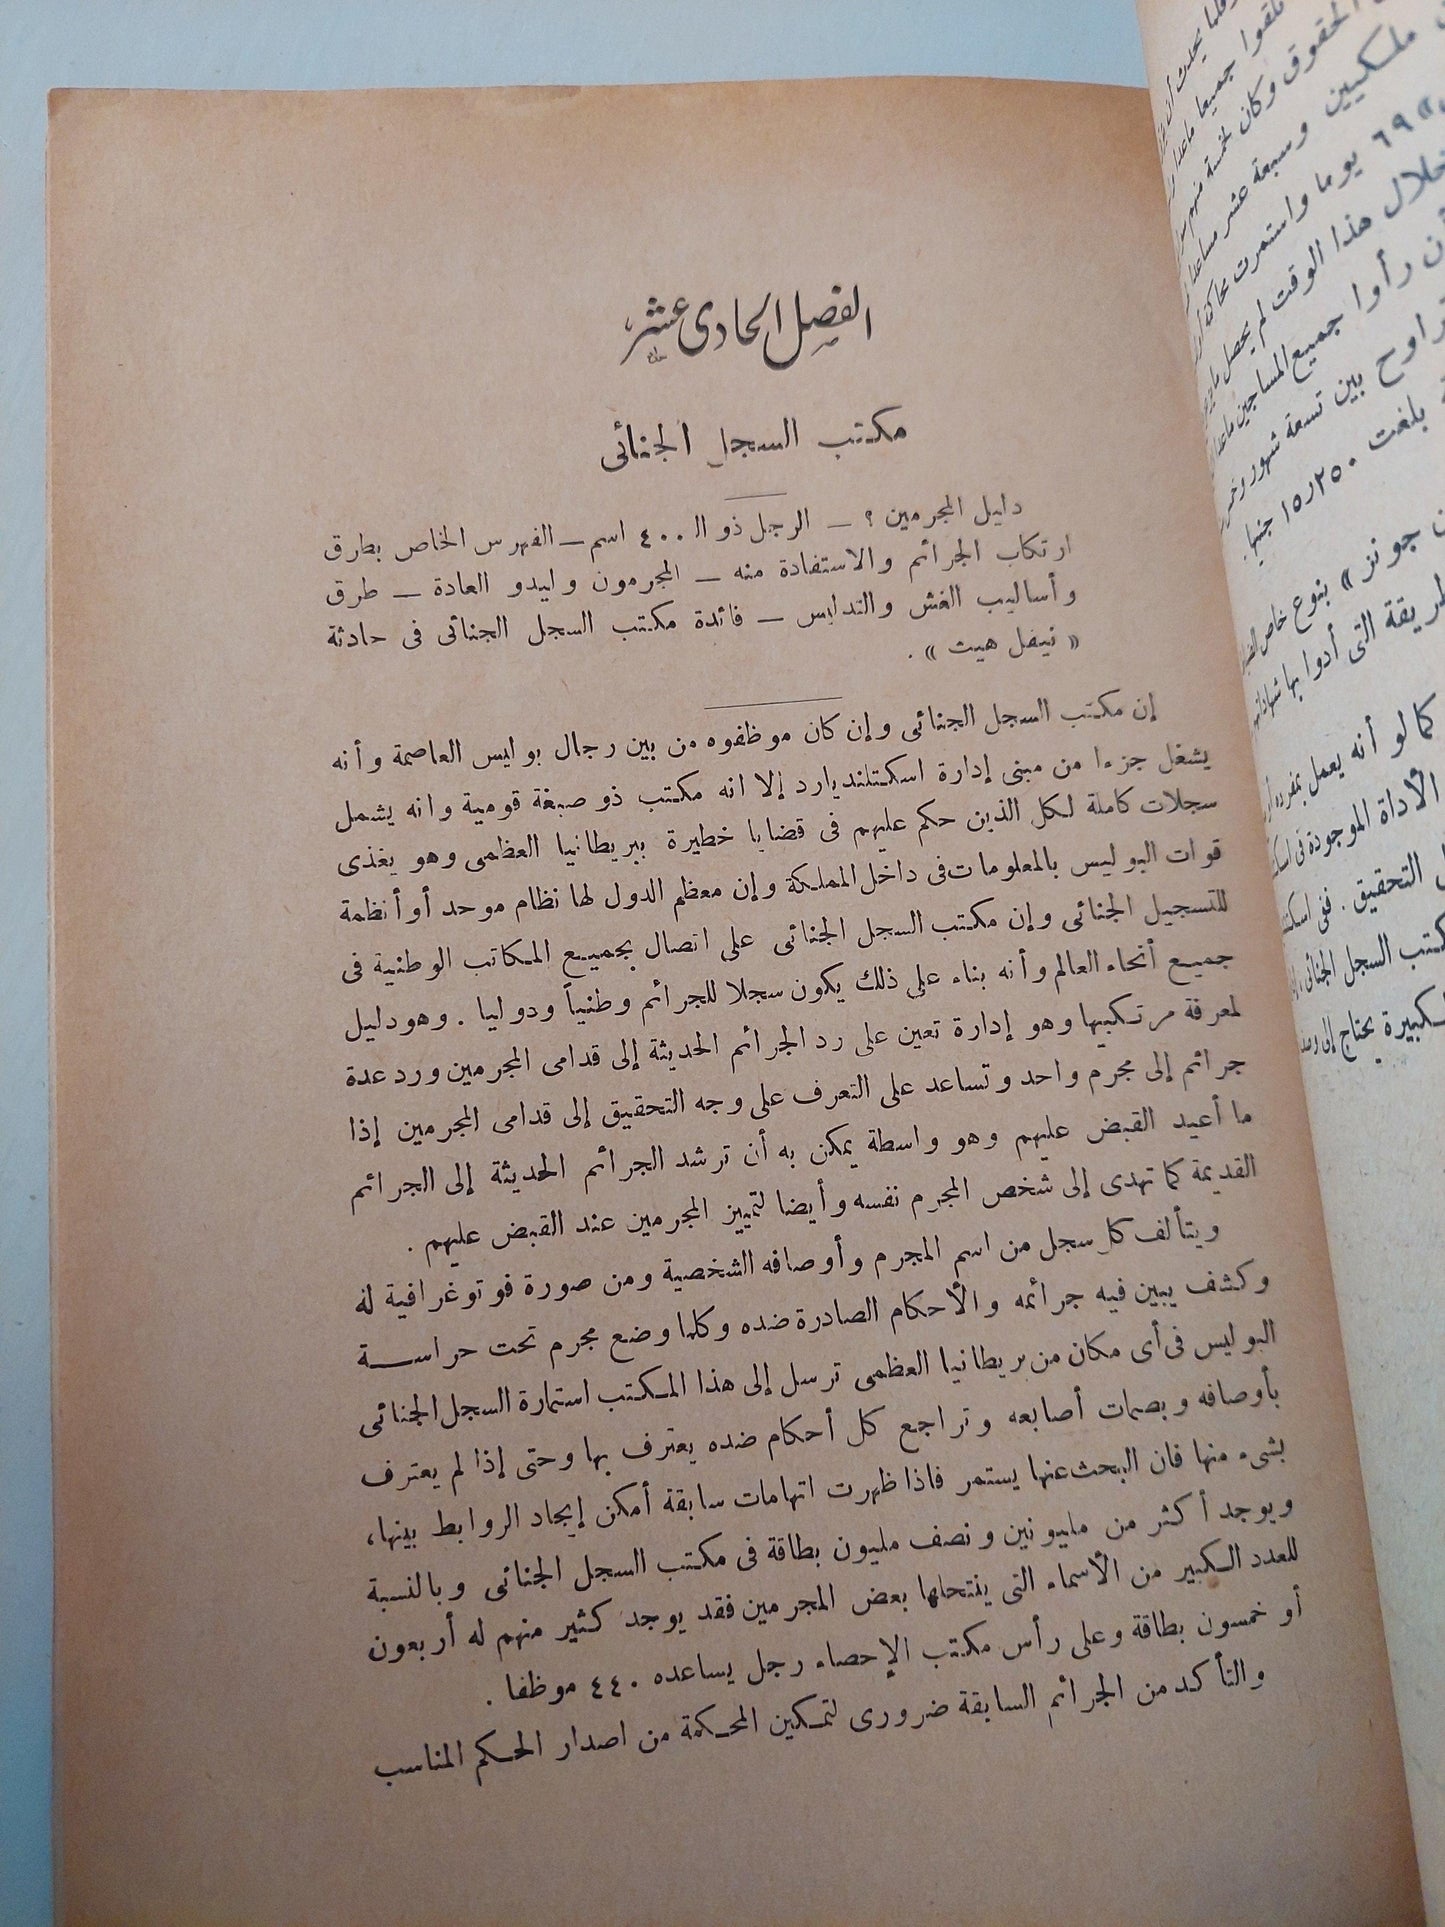 الفصل الحادى عشر
مكتب السجل الجنائى
دليل المجرمين ؟ — الرجل ذو الـ ٤٠٠ اسم — الفهرس الخاص بطرق
ارتكاب الجرائم والاستفادة منه — المجرمون وليدو العادة — طرق
وأساليب الغش والتدليس — فائدة مكتب السجل الجنائى فى حادثة
« نيفل هيث » .
إن مكتب السجل الجنائى وإن كان موظفوه من بين رجال بوليس العاصمة وأنه
يشغل جزءا من مبنى إدارة اسكتلنديارد إلا انه مكتب ذو صبغة قومية وانه يشمل
سجلات كاملة لكل الذين حكم عليهم فى قضايا خطيرة ببريطانيا العظمى وهو يغذى
قوات البوليس بالمعلومات فى داخل المملكة وإن معظم الدول لها نظام موحد أو أنظمة
للتسجيل الجنائى وإن مكتب السجل الجنائى على اتصال بجميع المكاتب الوطنية فى
جميع أنحاء العالم وأنه بناء على ذلك يكون سجلا للجرائم وطنياً ودوليا . وهو دليل
لمعرفة مرتكبيها وهو إدارة تعين على رد الجرائم الحديثة إلى قدامى المجرمين ورد عدة
جرائم إلى مجرم واحد وتساعد على التعرف على وجه التحقيق إلى قدامى المجرمين إذا
ما أعيد القبض عليهم وهو واسطة يمكن به أن ترشد الجرائم الحديثة إلى الجرائم
القديمة كما تهدى إلى شخص المجرم نفسه وأيضا لتمييز المجرمين عند القبض عليهم .
ويتألف كل سجل من اسم المجرم وأوصافه الشخصية ومن صورة فوتوغرافية له
وكشف يبين فيه جرائمه والأحكام الصادرة ضده وكلما وضع مجرم تحت حراسة
البوليس فى أى مكان من بريطانيا العظمى ترسل إلى هذا المكتب استمارة السجل الجنائى
بأوصافه وبصمات أصابعه وتراجع كل أحكام ضده يعترف بها وحتى إذا لم يعترف
بشىء منها فان البحث عنها يستمر فاذا ظهرت اتهامات سابقة أمكن إيجاد الروابط بينها،
ويوجد أكثر من مليونين ونصف مليون بطاقة فى مكتب السجل الجنائى وبالنسبة
للعدد الكبير من الأسماء التى ينتحلها بعض المجرمين فقد يوجد كثير منهم له أربعون
أو خمسون بطاقة وعلى رأس مكتب الإحصاء رجل يساعده ٤٤٠ موظفا .
والتأكد من الجرائم السابقة ضرورى لتمكين المحكمة من اصدار الحكم المناسب
الحقوق وكان لخمسة منهم
ملكيين وسبعة عشر
٦٩ يوما واستمرت
خلال هذا الوقت لم يحصل
رأوا جميع المساجين
بين تسعة شهور
بلغت ١٥٫٢٥٠ جنيها .
جونز » بنوع خاص
التى أدوا بها
كما لو أنه يعمل بمفرده
الأداة الموجودة فى
التحقيق . ففى
السجل الجنائى
يحتاج إلى